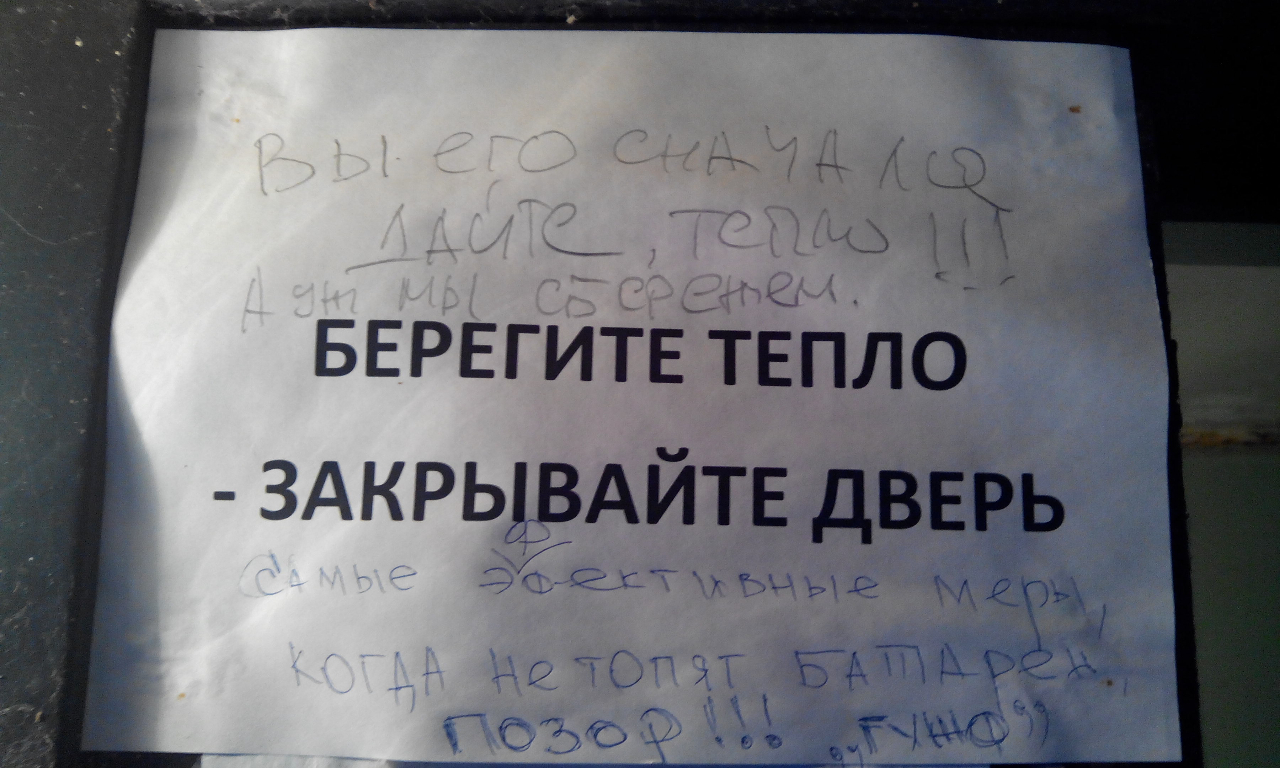 ВЫ ЕГО СНАЧАЛО
ДАЙТЕ, ТЕПЛО!!!
А УЖ МЫ СБЕРЕЖЕМ.
БЕРЕГИТЕ ТЕПЛО
- ЗАКРЫВАЙТЕ ДВЕРЬ
Ф
Самые эфективные меры,
когда не топят батареи,
ПОЗОР!!! „ГУЖФ”